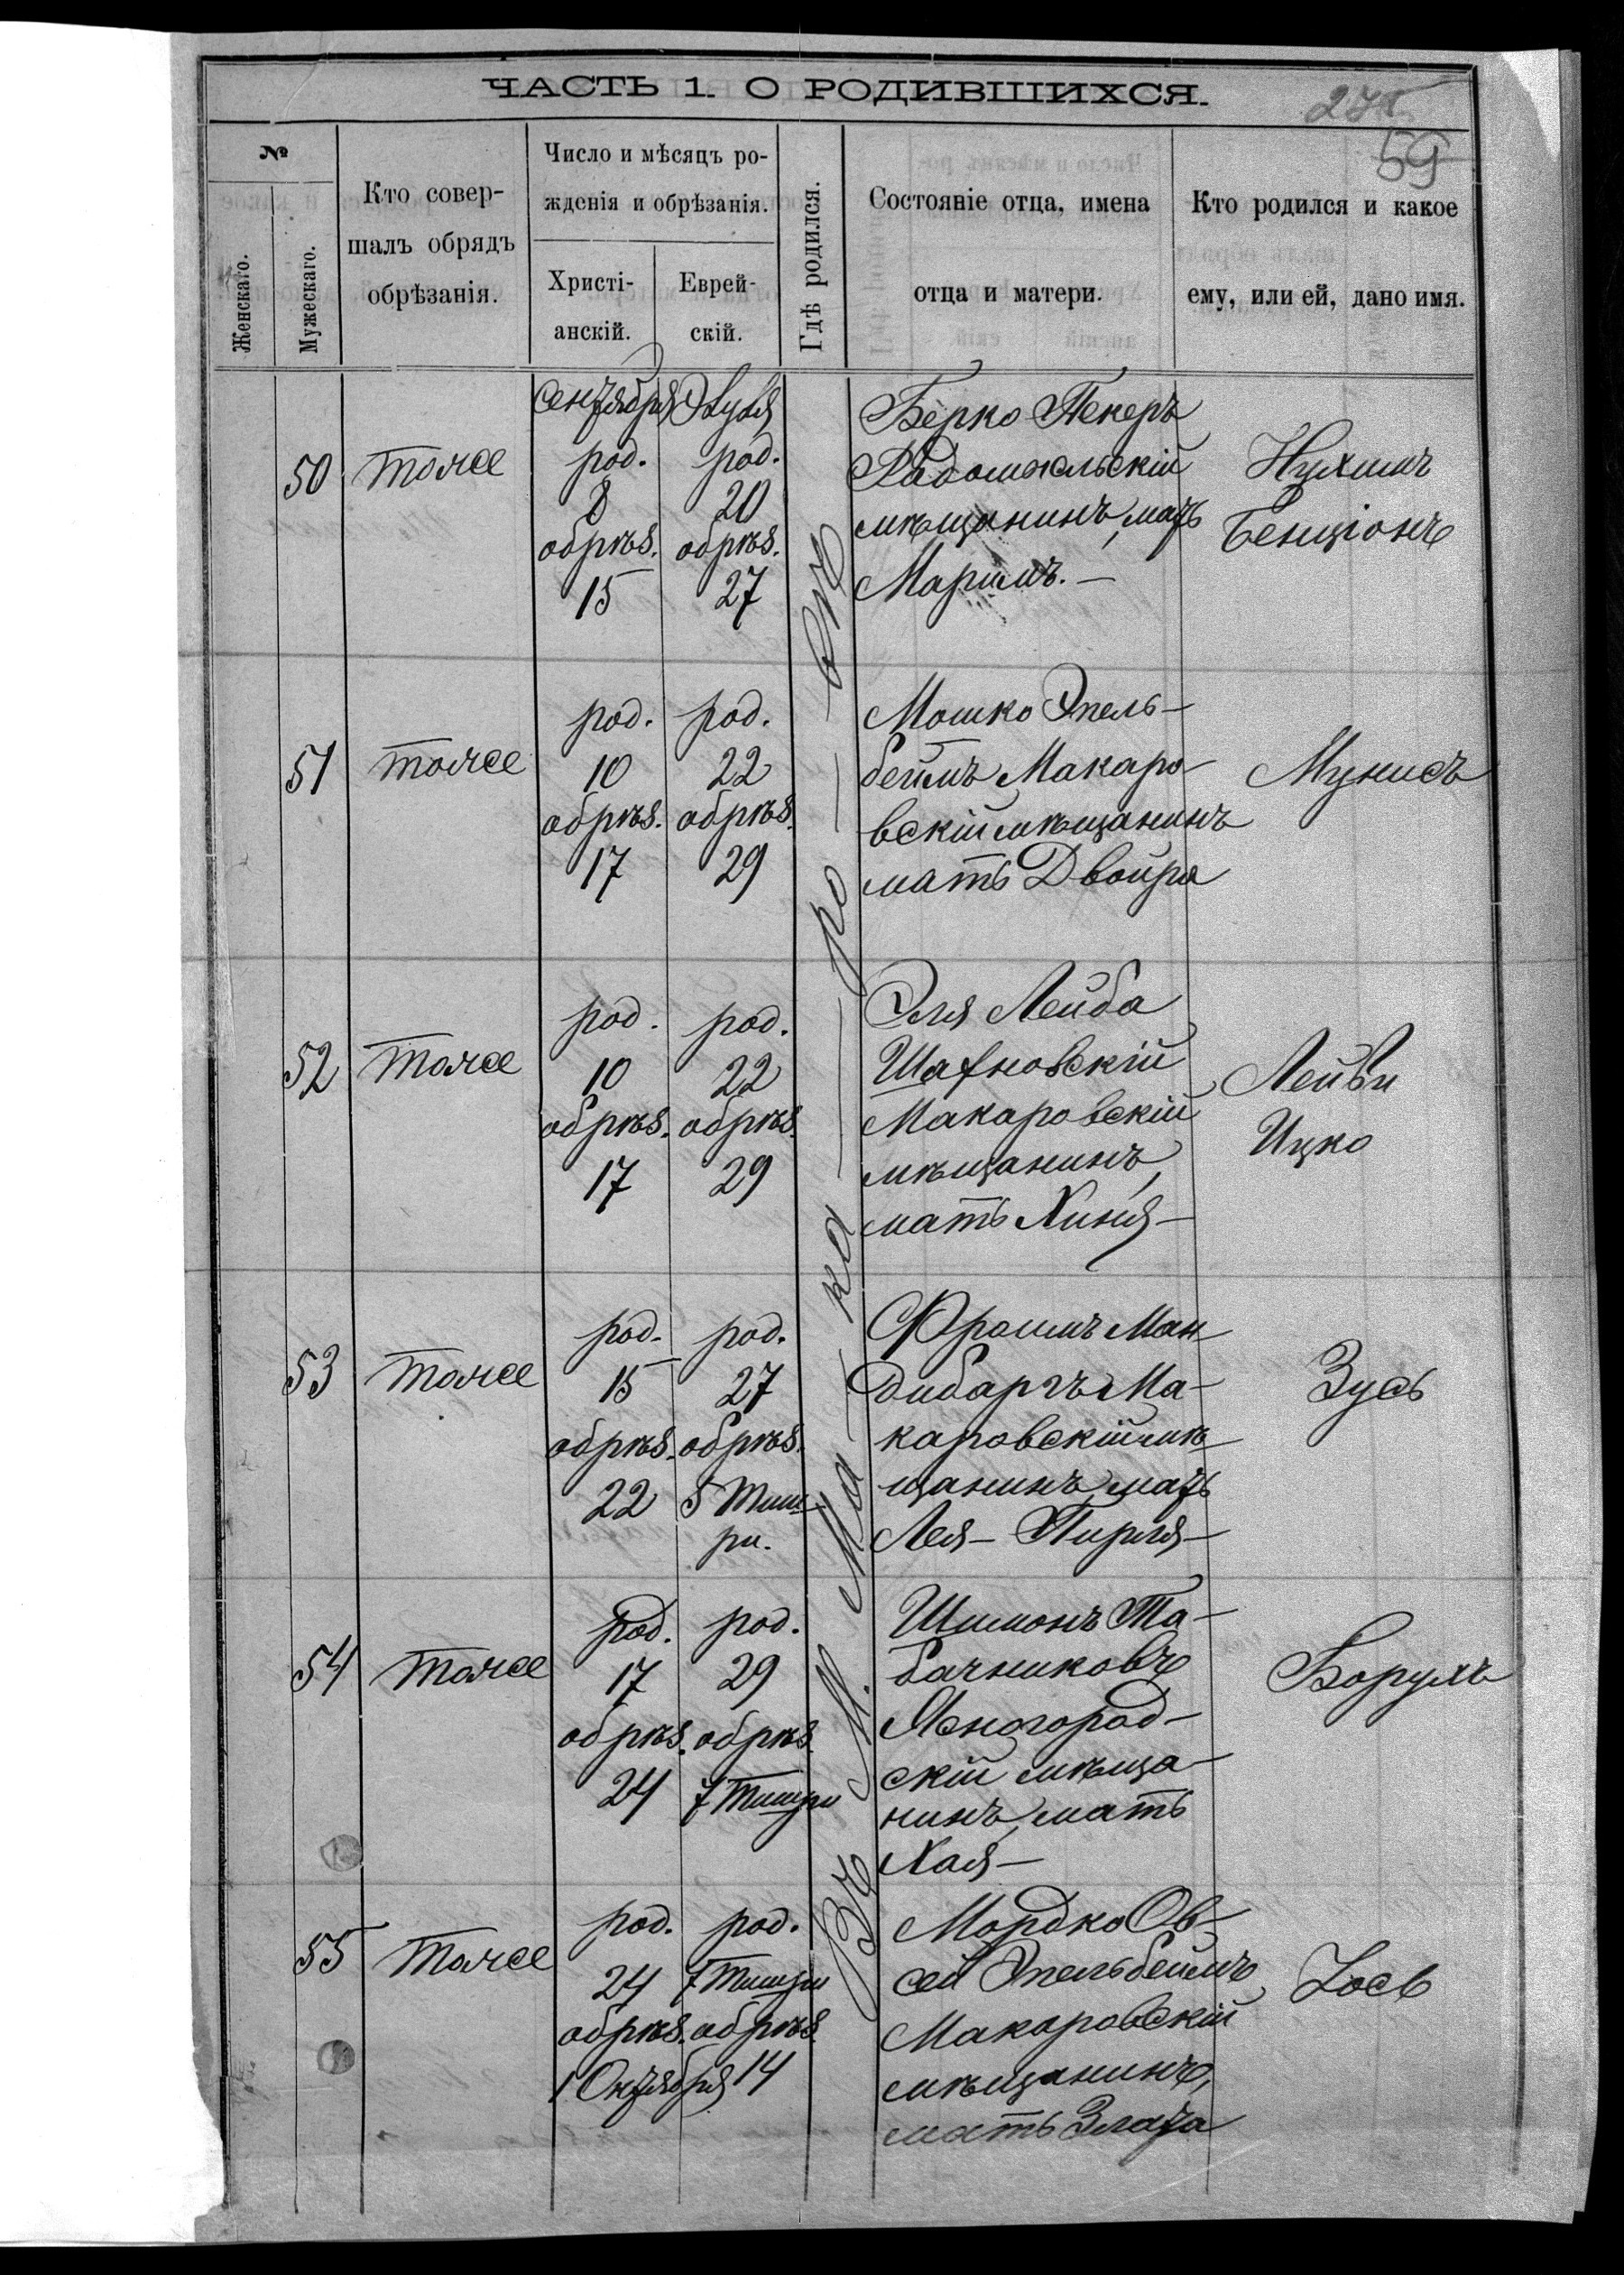 ЧАСТЬ 1. О РОДИВШИХСЯ.
59
№
Женскаго.
Мужескаго.
Кто совер-
шалъ обрядъ
обрѣзанія.
Число и мѣсяцъ ро-
жденія и обрѣзанія.
Христі-
анскій.
Еврей-
скій.
Гдѣ родился.
Состояніе отца, имена
отца и матери.
Кто родился и какое
ему, или ей, дано имя.
Въ М. Ма-ка-ро-вѣ
50
тоже
Сентября
род.
8
обрѣз.
15
Элуля
род.
20
обрѣз.
27
Берко Пекеръ
Радомысльскій
мѣщанинъ, мать
Маріимъ. —
Нухимъ
Бенціонъ
51
тоже
род.
10
обрѣз.
17
род.
22
обрѣз.
29
Мошко Эпель-
беймъ Макаро-
вскій мѣщанинъ
мать Двойра
Мунисъ
52
тоже
род.
10
обрѣз.
17
род.
22
обрѣз.
29
Эля Лейба
Шахновскій
Макаровскій
мѣщанинъ,
мать Хиня —
Лейви
Ицко
53
тоже
род.
15
обрѣз.
22
род.
27
обрѣз.
5 Тиш-
ри.
Фроимъ Ман-
дибаргъ Ма-
каровскій мѣ-
щанинъ, мать
Лея - Пирля —
Зусь
54
тоже
род.
17
обрѣз.
24
род.
29
обрѣз.
7 Тишри
Шимонъ Та-
бачниковъ
Ясногород-
скій мѣща-
нинъ, мать
Хая —
Борухъ
55
тоже
род.
24
обрѣз.
1 Октября
род.
7 Тишри
обрѣз.
14
Мордко Ов-
сей Эпельбеймъ
Макаровскій
мѣщанинъ,
мать Злата
Іосъ